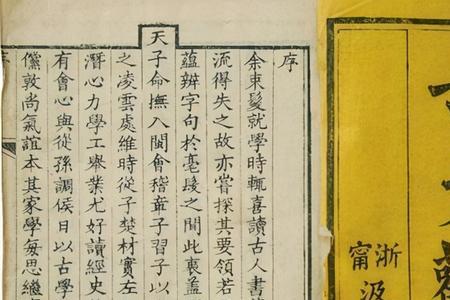 序
余束髮就學時輒喜讀古人書
流得失之故亦嘗探其要領若
蘊辨字句於毫髮之間此衷蓋
天子命撫八閩會稽章子習子以
之凌雲處維時從子楚材實左
潛心力學工舉業尤好讀經史
有會心與從孫調侯日以古學
儻敦尚氣誼本其家學每思繼
浙
甯汲